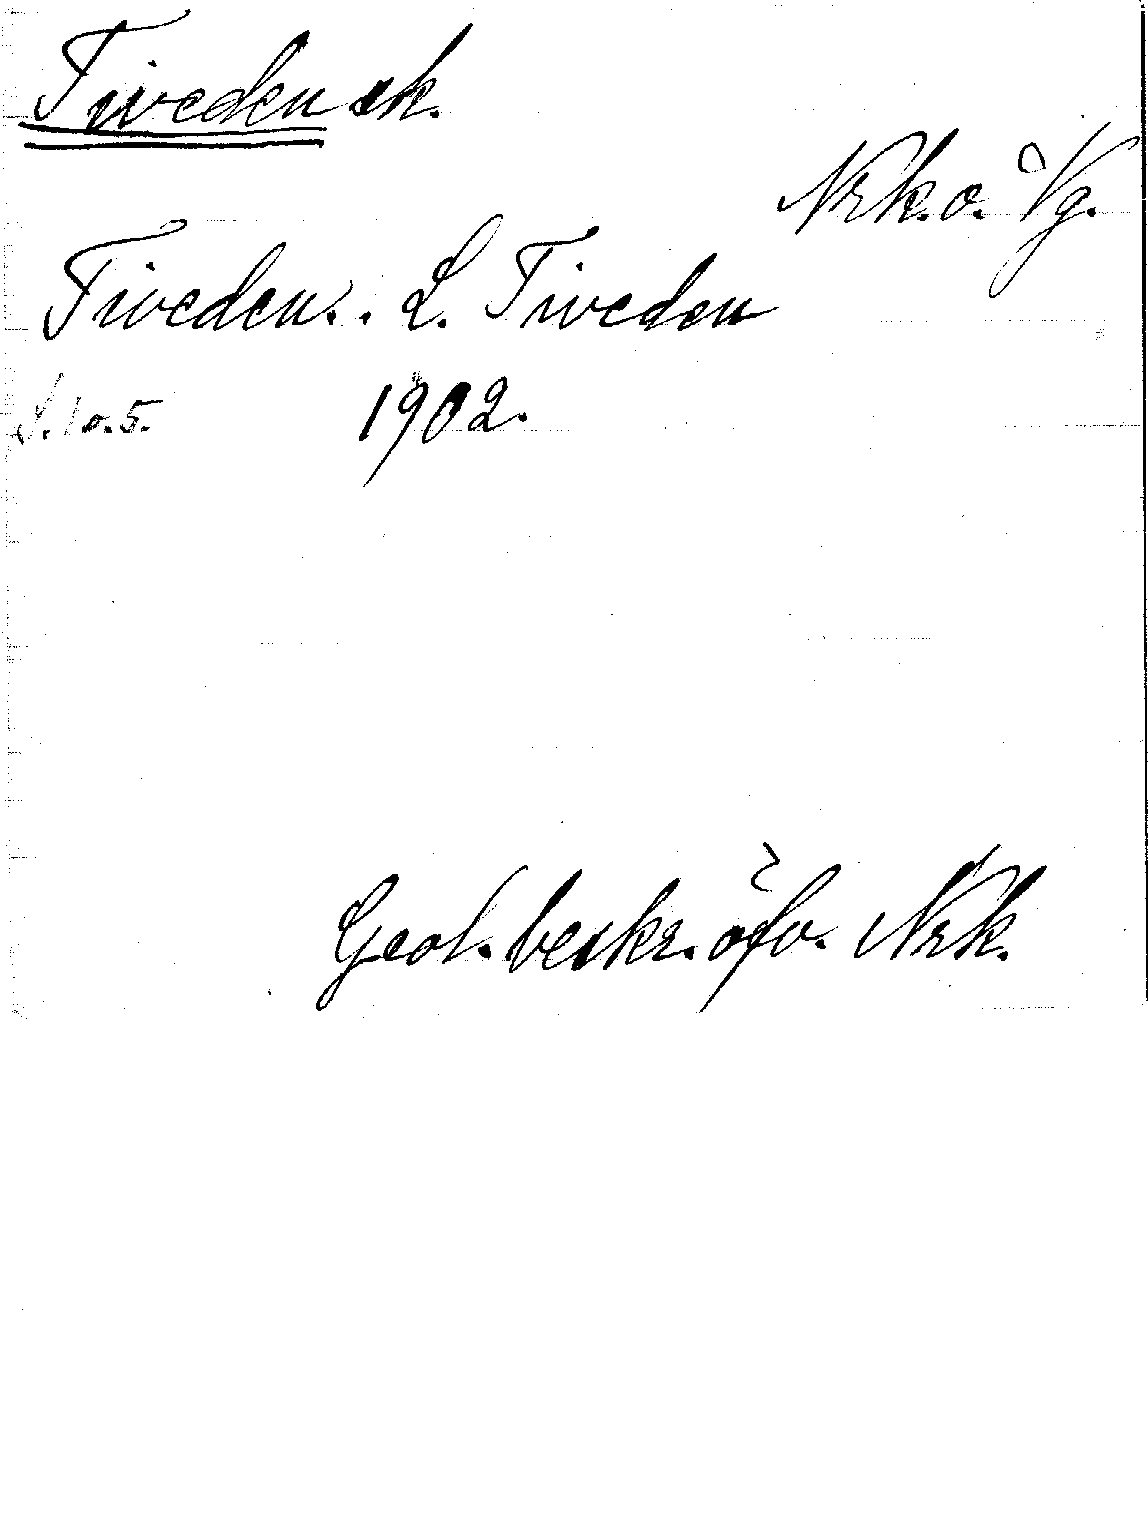 Tiveden sk.
Nrk. o. Vg.
Tiveden. . L. Tiveden
S. 1 o. 5. 1902.
Geol. beskr. öfv. Nrk.